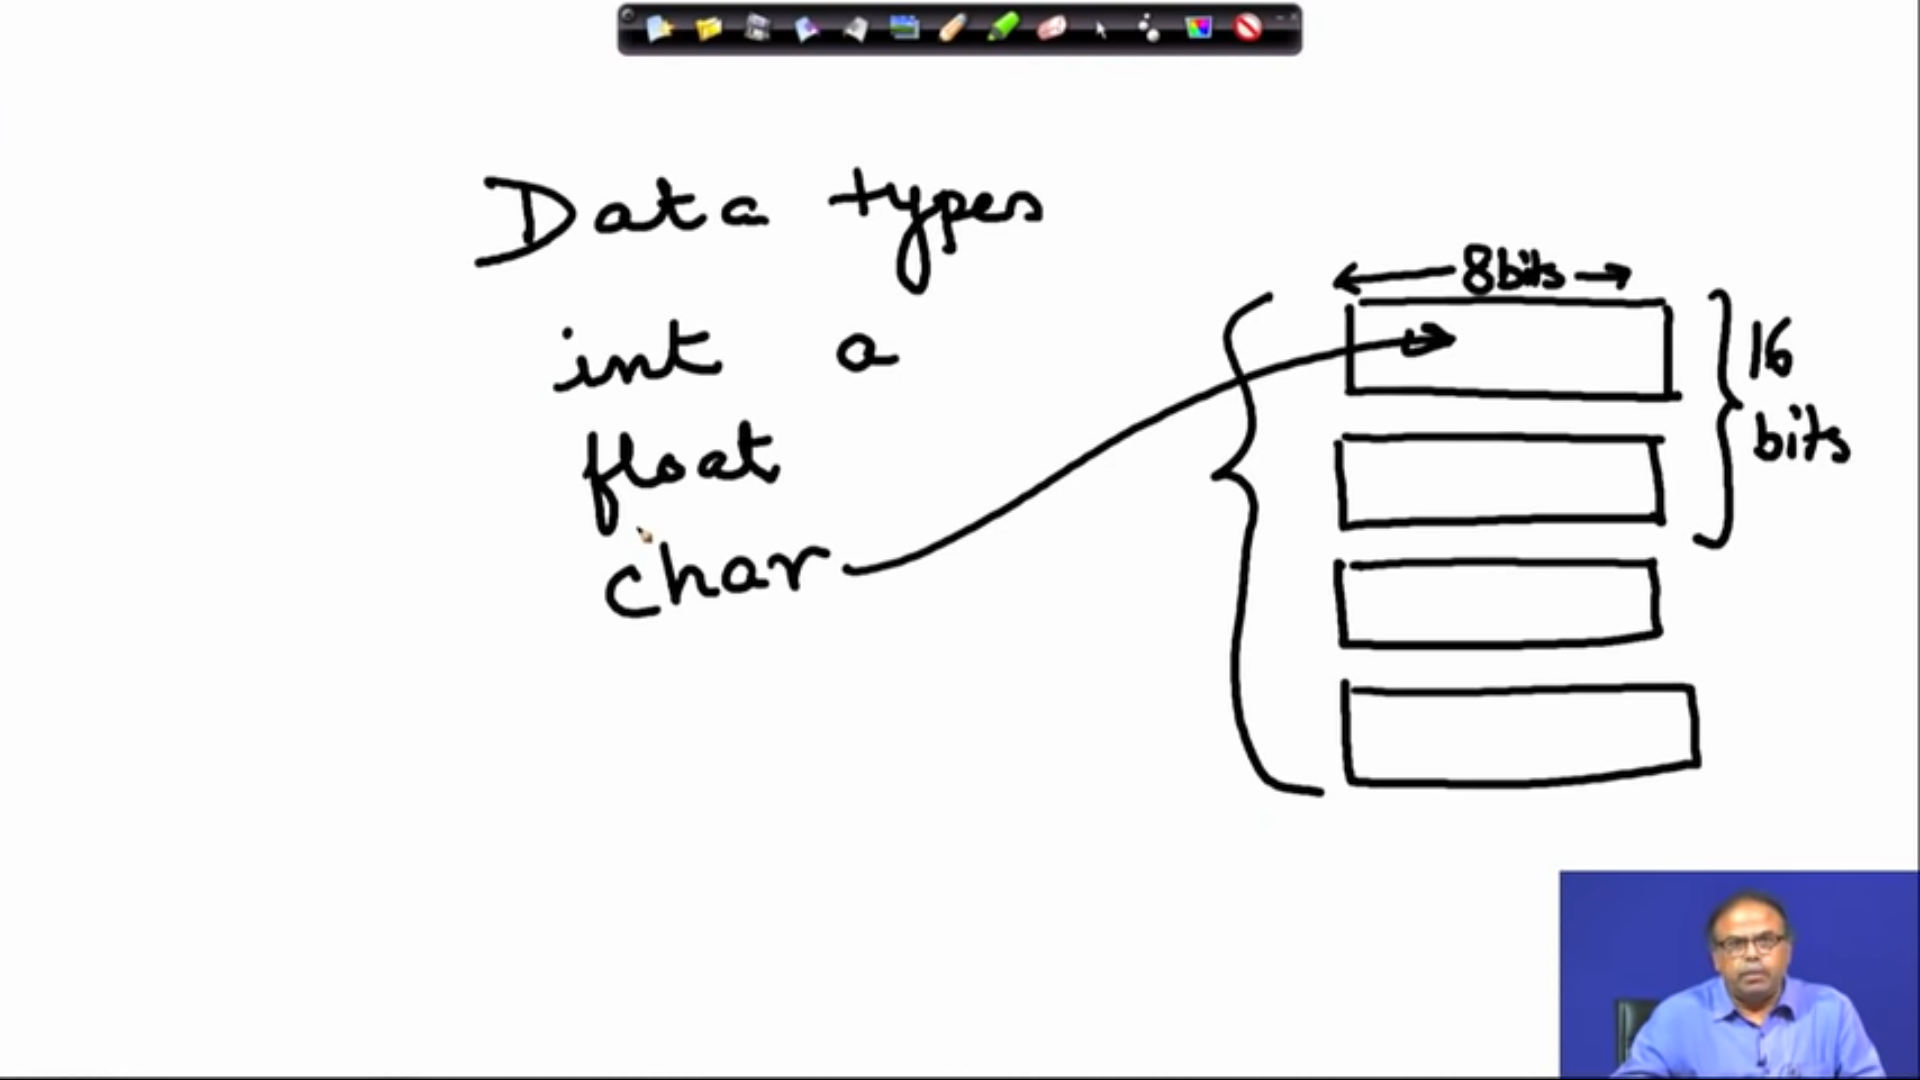 Data types
int a
float
char
8bits
16
bits